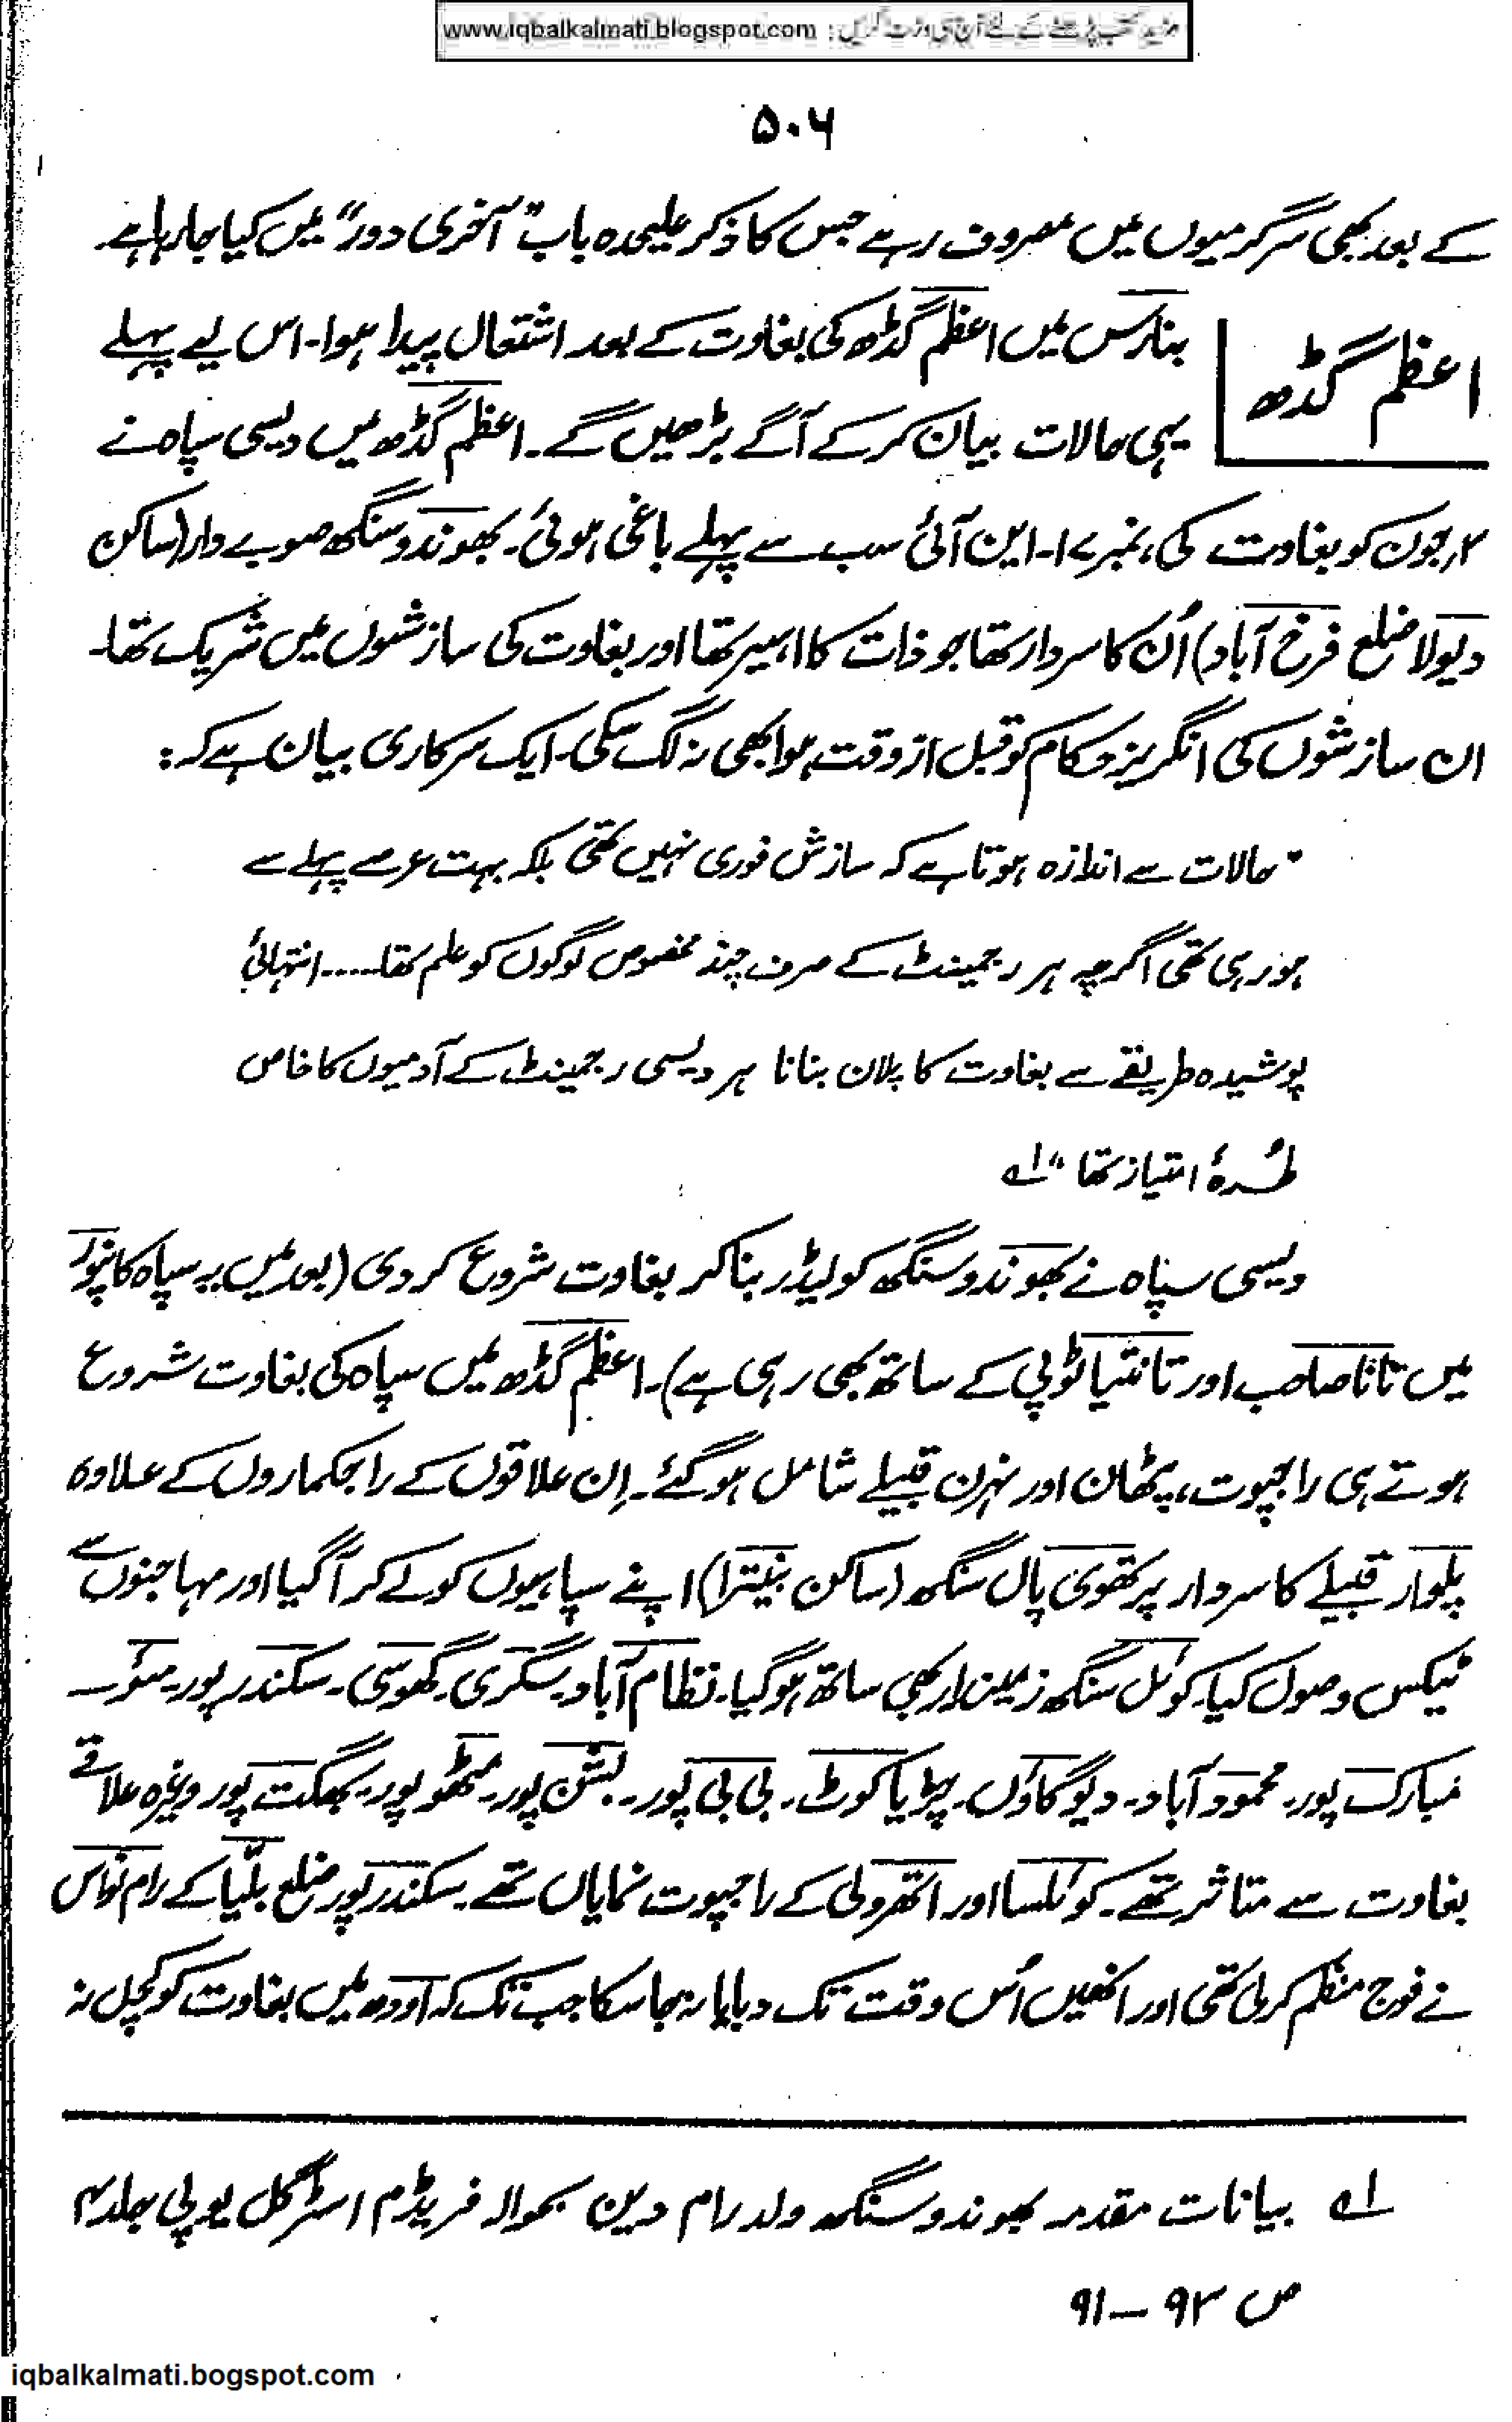 مزید کتب پڑھنے کے لئے آج ہی وزٹ کریں : www.iqbalkalmati.blogspot.com
۵۰۶
کے بعد بھی سرگرمیوں میں مصروف رہے جس کا ذکر علیحدہ باب "آخری دور" میں کیا جا رہا ہے۔
اعظم گڈھ
بنارس میں اعظم گڈھ کی بغاوت کے بعد اشتعال پیدا ہوا۔ اس لیے پہلے
یہی حالات بیان کر کے آگے بڑھیں گے۔ اعظم گڈھ میں دیسی سپاہ نے
۲ر جون کو بغاوت کی، نمبر ۱۷۔ این آئی سب سے پہلے باغی ہوئی۔ بھوندو سنگھ صوبے دار (ساکن
دیولا ضلع فرخ آباد) اُن کا سردار تھا جو ذات کا اہیر تھا اور بغاوت کی سازشوں میں شریک تھا۔
ان سازشوں کی انگریز حکام کو قبل از وقت ہوا بھی نہ لگ سکی۔ ایک سرکاری بیان ہے کہ :
"حالات سے اندازہ ہوتا ہے کہ سازش فوری نہیں تھی بلکہ بہت عرصے پہلے سے
ہو رہی تھی اگرچہ ہر رجمینٹ کے صرف چند مخصوص لوگوں کو علم تھا..... انتہائی
پوشیدہ طریقے سے بغاوت کا پلان بنانا ہر دیسی رجمینٹ کے آدمیوں کا خاص
طُرہٴ امتیاز تھا" لہ
دیسی سپاہ نے بھوندو سنگھ کو لیڈر بنا کر بغاوت شروع کر دی (بعد میں یہ سپاہ کانپور
میں نانا صاحب اور تانتیا ٹوپی کے ساتھ بھی رہی ہے)۔ اعظم گڈھ میں سپاہ کی بغاوت شروع
ہوتے ہی راجپوت، پٹھان اور قبیلے شامل ہو گئے۔ اِن علاقوں کے راجکماروں کے علاوہ
پلوار قبیلے کا سردار پرتھوی پال سنگھ (ساکن) اپنے سپاہیوں کو لے کر آ گیا اور مہاجنوں سے
ٹیکس وصول کیا۔ کوئل سنگھ زمیندار بھی ساتھ ہو گیا۔ نظام آباد۔ سگری۔ گھوسی۔ سکندر پور۔ مئو۔
مبارک پور۔ محمود آباد۔ دیو گاؤں۔ چڑیا کوٹ۔ بی بی پور۔ بشن پور۔ مٹھو پور۔ بھگت پور وغیرہ علاقے
بغاوت سے متاثر تھے۔ کوئلسا اور اتھرولی کے راجپوت نمایاں تھے۔ سکندر پور ضلع بلّیا کے رام نواس
نے فوج منظم کر لی تھی اور انھیں اُس وقت تک دبایا نہ جا سکا جب تک کہ اودھ میں بغاوت کو کچل نہ
لہ بیانات مقدمہ بھوندو سنگھ ولد رام دین بحوالہ فریڈم اسٹرگل یو پی جلد ۴
ص ۹۲ – ۹۱
iqbalkalmati.bogspot.com